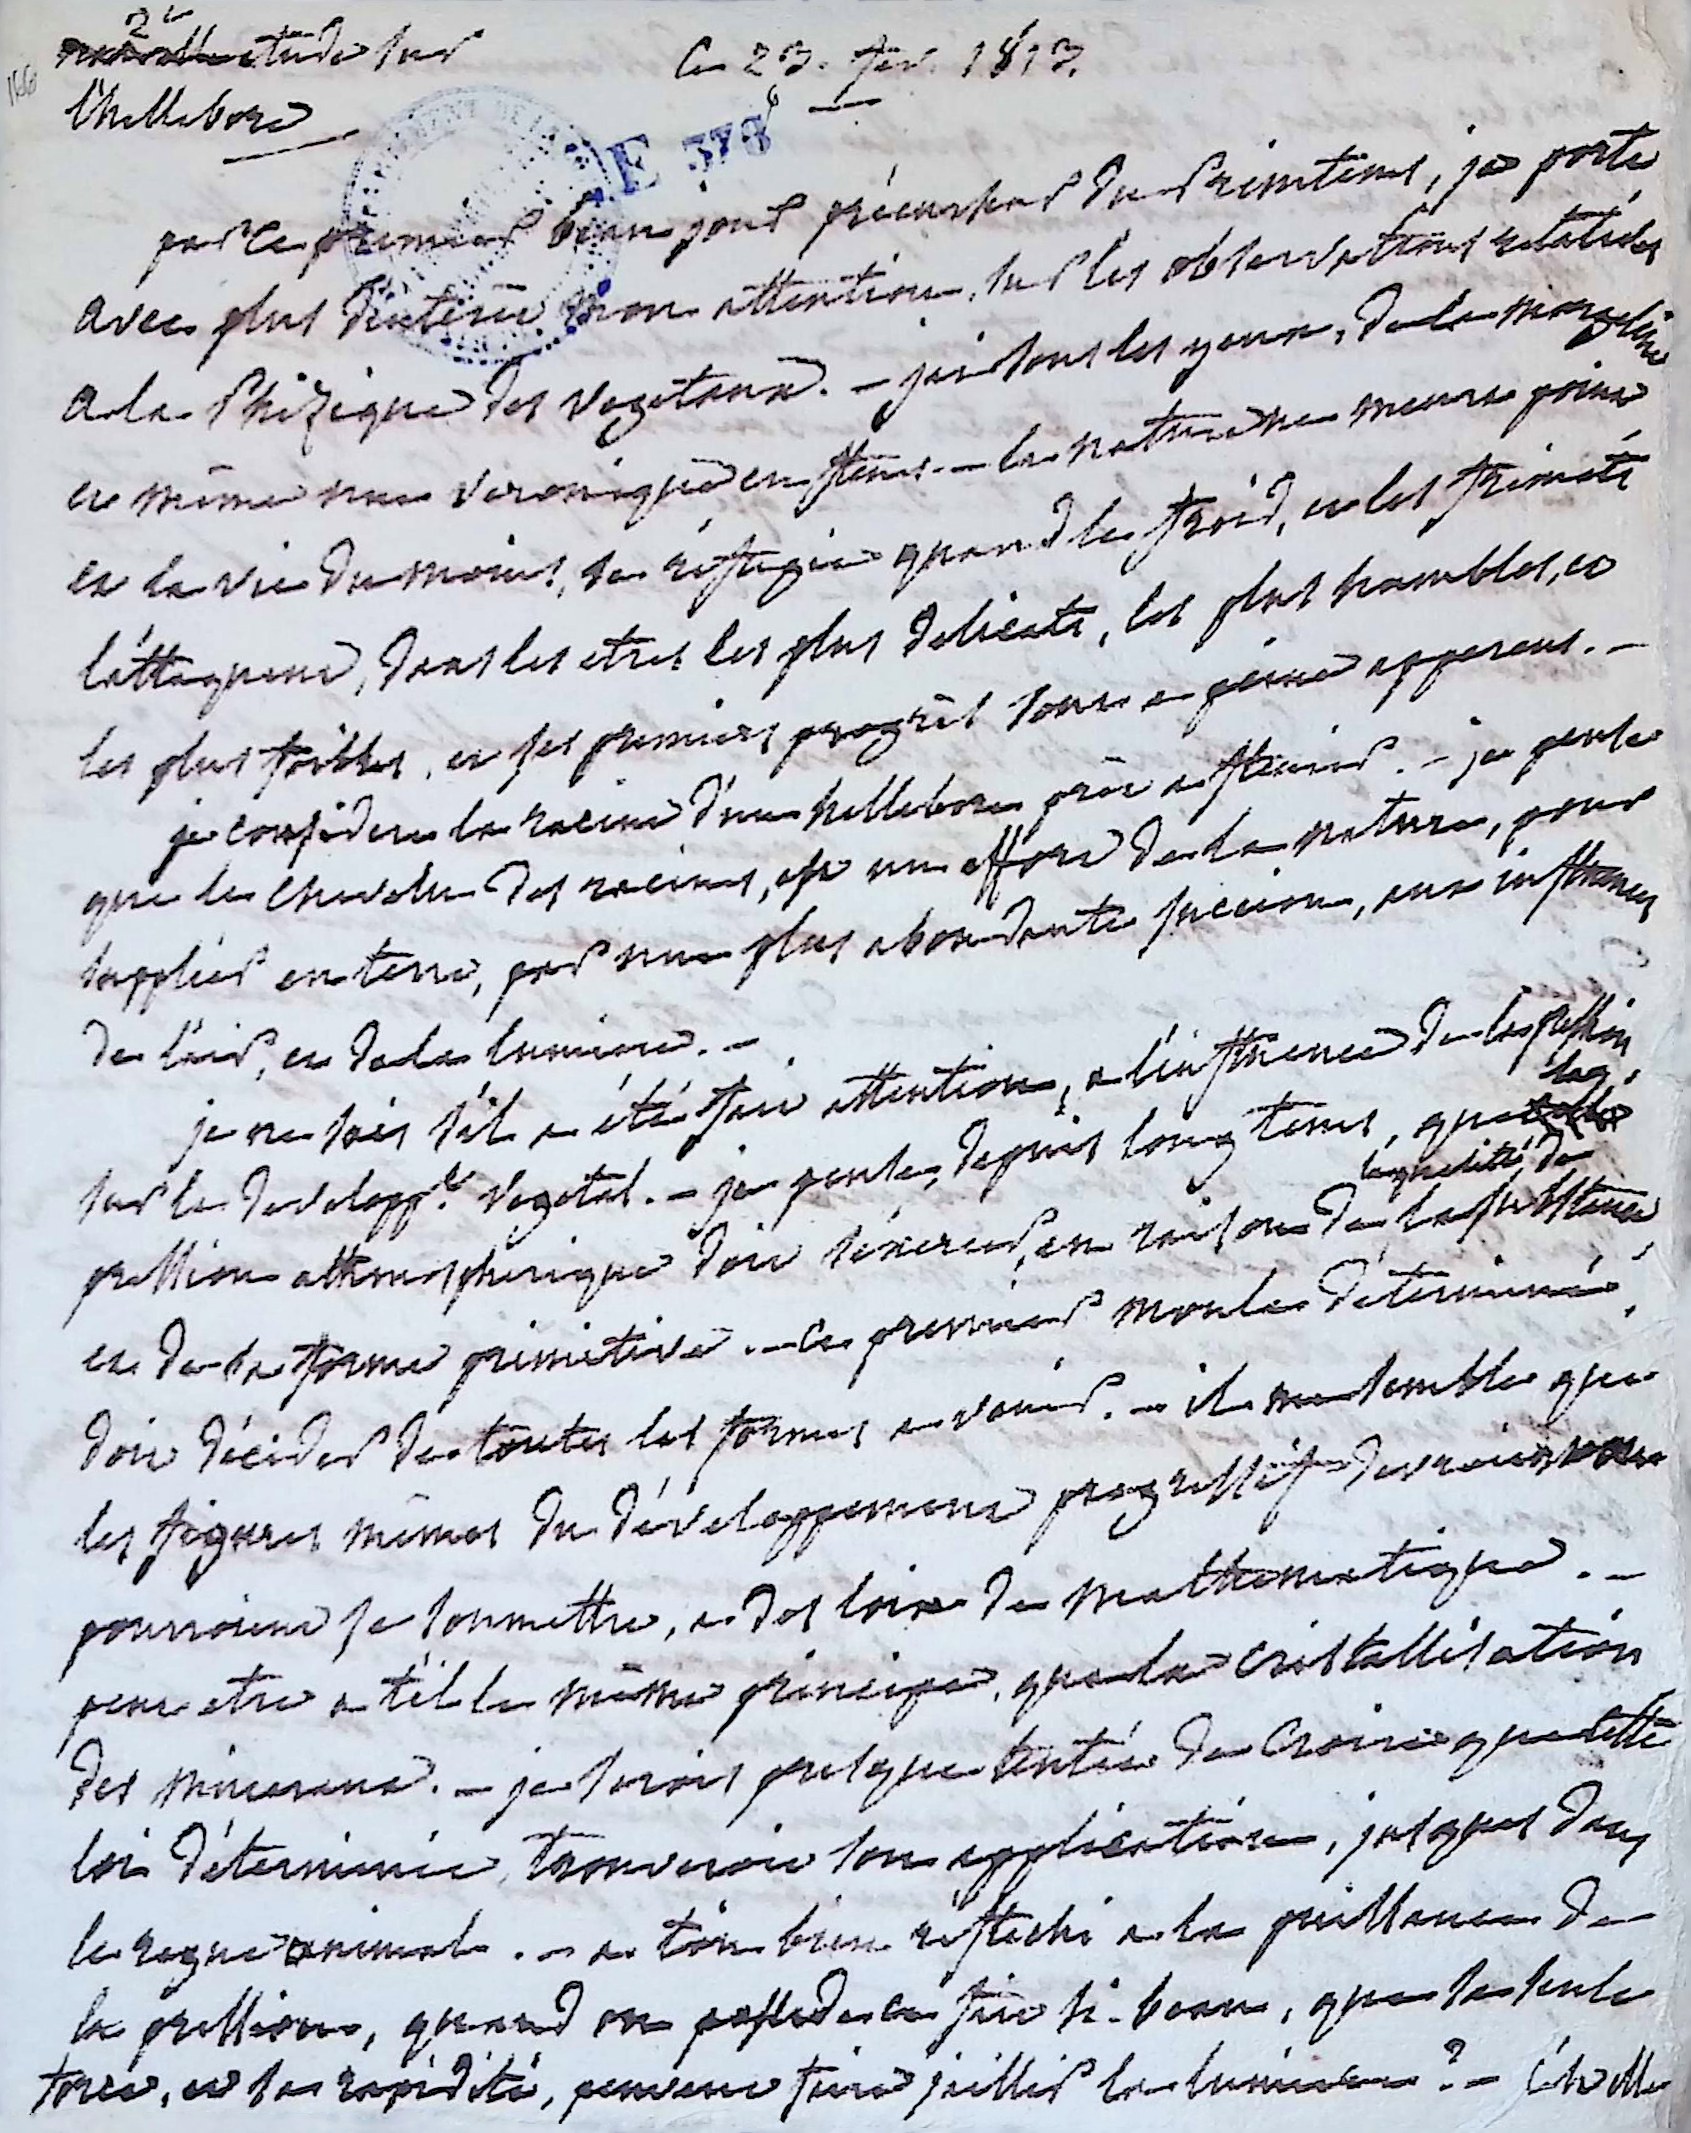 2e
nouvelle etude sur
l'hellebore
ce 23. fev. 1813.
166
E 378
par ce premier beau jour précurseur du Printems, je porte
avec plus d'interêt mon attention, sur les observations relatives
a la Phizique des vegetaux. - j'ai sous les yeux, de la morgeline
et même une veronique en fleurs. - la nature ne meurt point
et la vie du moins, se réfugie quand le froid, et les frimats
l'attaquent, dans les etres les plus delicats, les plus humbles, et
les plus foibles, et ses premiers progrès sont a peine apparens. -
je considere la racine d'un hellebore prêt a fleurir. - je pense
que le chevelu des racines, est un effort de la nature, pour
supplier en terre, par une plus abondante succion, aux influences
de l'air, et de la lumiere. -
je ne sais s'il a été fait attention, a l'influence de la pression
sur le developpt. vegetal. - je pense, depuis long tems, que
la
pression athmospherique doit s'exercer, en raison de la substance,
la qualité de
et de sa forme primitive. - ce premier moule déterminé,
doit décider de toutes les formes a venir. - il me semble que
les figures mêmes du développement progressif devroient
pourroient se soumettre, a des loix de mathematique. -
peut etre a t'il le même principe, que la cristallisation
des mineraux. - je serois presque tentée de croire que cette
loi déterminée, trouveroit son application, jusques dans
le regne animal. - a t'on bien réflechi a la puissance de
la pression, quand on possede ce fait si beau, que sa seule
force, et sa rapidité, peuvent faire jaillir la lumiere ? - l'helle